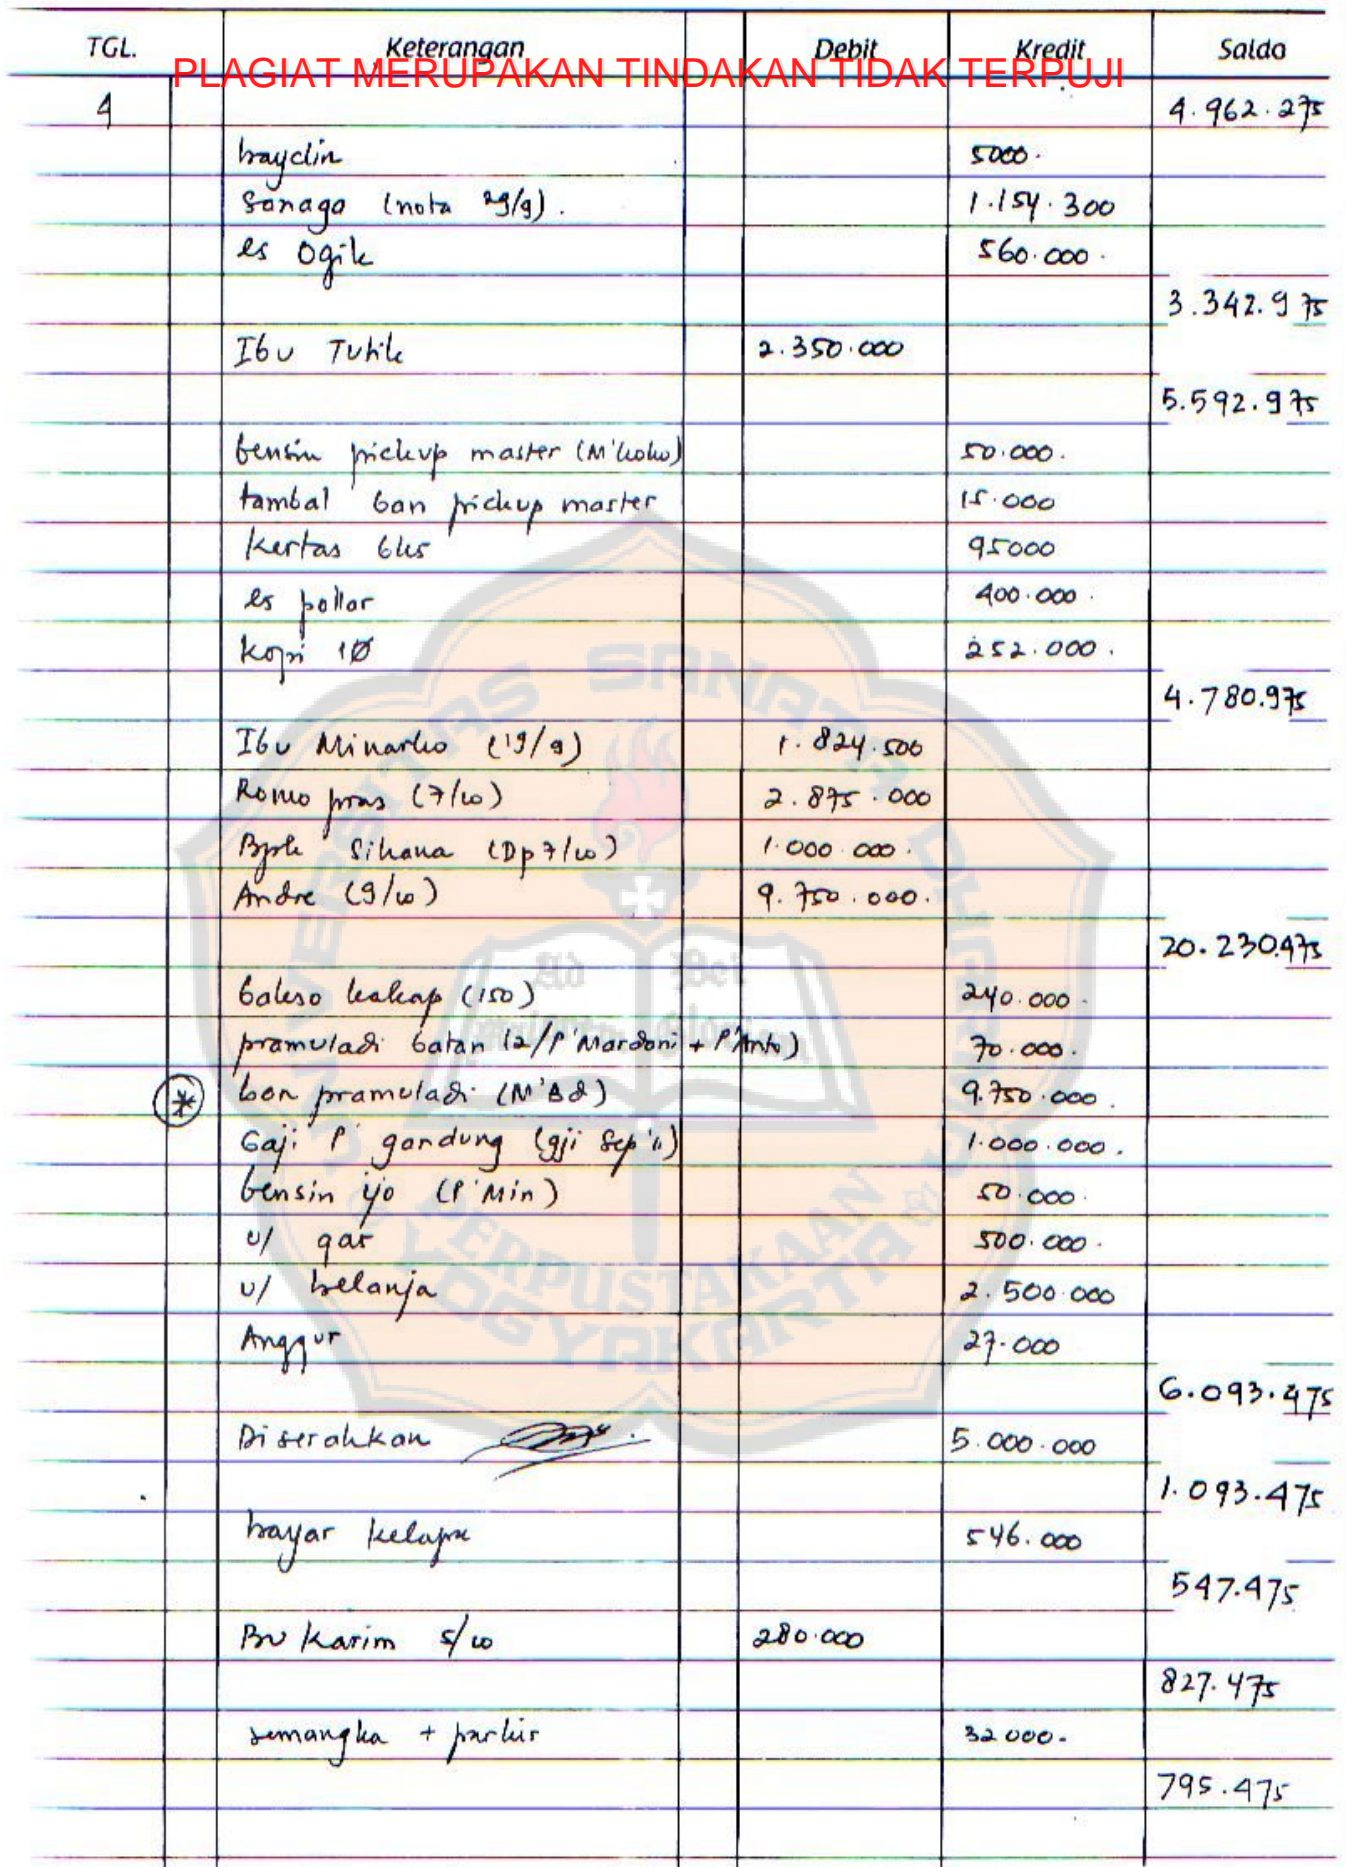 TGL. Keterangan Debit Kredit Saldo
PLAGIAT MERUPAKAN TINDAKAN TIDAK TERPUJI
4 4.962.275
bayclin 5000.
Sanaga (nota 29/9). 1.154.300
es Ogik 560.000.
3.342.975
Ibu Tutik 2.350.000
5.592.975
bensin pickup master (M'koko) 50.000.
tambal ban pickup master 15.000
Kertas bks 95000
es pollar 400.000.
kopi 10 252.000.
4.780.975
Ibu Minarko (19/9) 1.824.500
Romo pras (7/10) 2.875.000
Bpk Sihana (Dp 7/10) 1.000.000.
Andre (9/10) 9.750.000.
20.230.475
bakso kakap (150) 240.000.
pramuladi batan (2/P'Mardoni + P'Anto) 70.000.
* bon pramuladi (M'Ad) 9.750.000.
Gaji P' gandung (gji Sep'11) 1.000.000.
bensin ijo (P'Min) 50.000.
u/ gas 500.000.
u/ belanja 2.500.000
Anggur 27.000
6.093.475
Diserahkan 5.000.000
1.093.475
bayar kelapa 546.000
547.475
Bu Karim 5/10 280.000
827.475
semangka + parkir 32000.
795.475
UNIVERSITAS SANATA DHARMA
Ad Dei
Gloriam
PERPUSTAKAAN
YOGYAKARTA